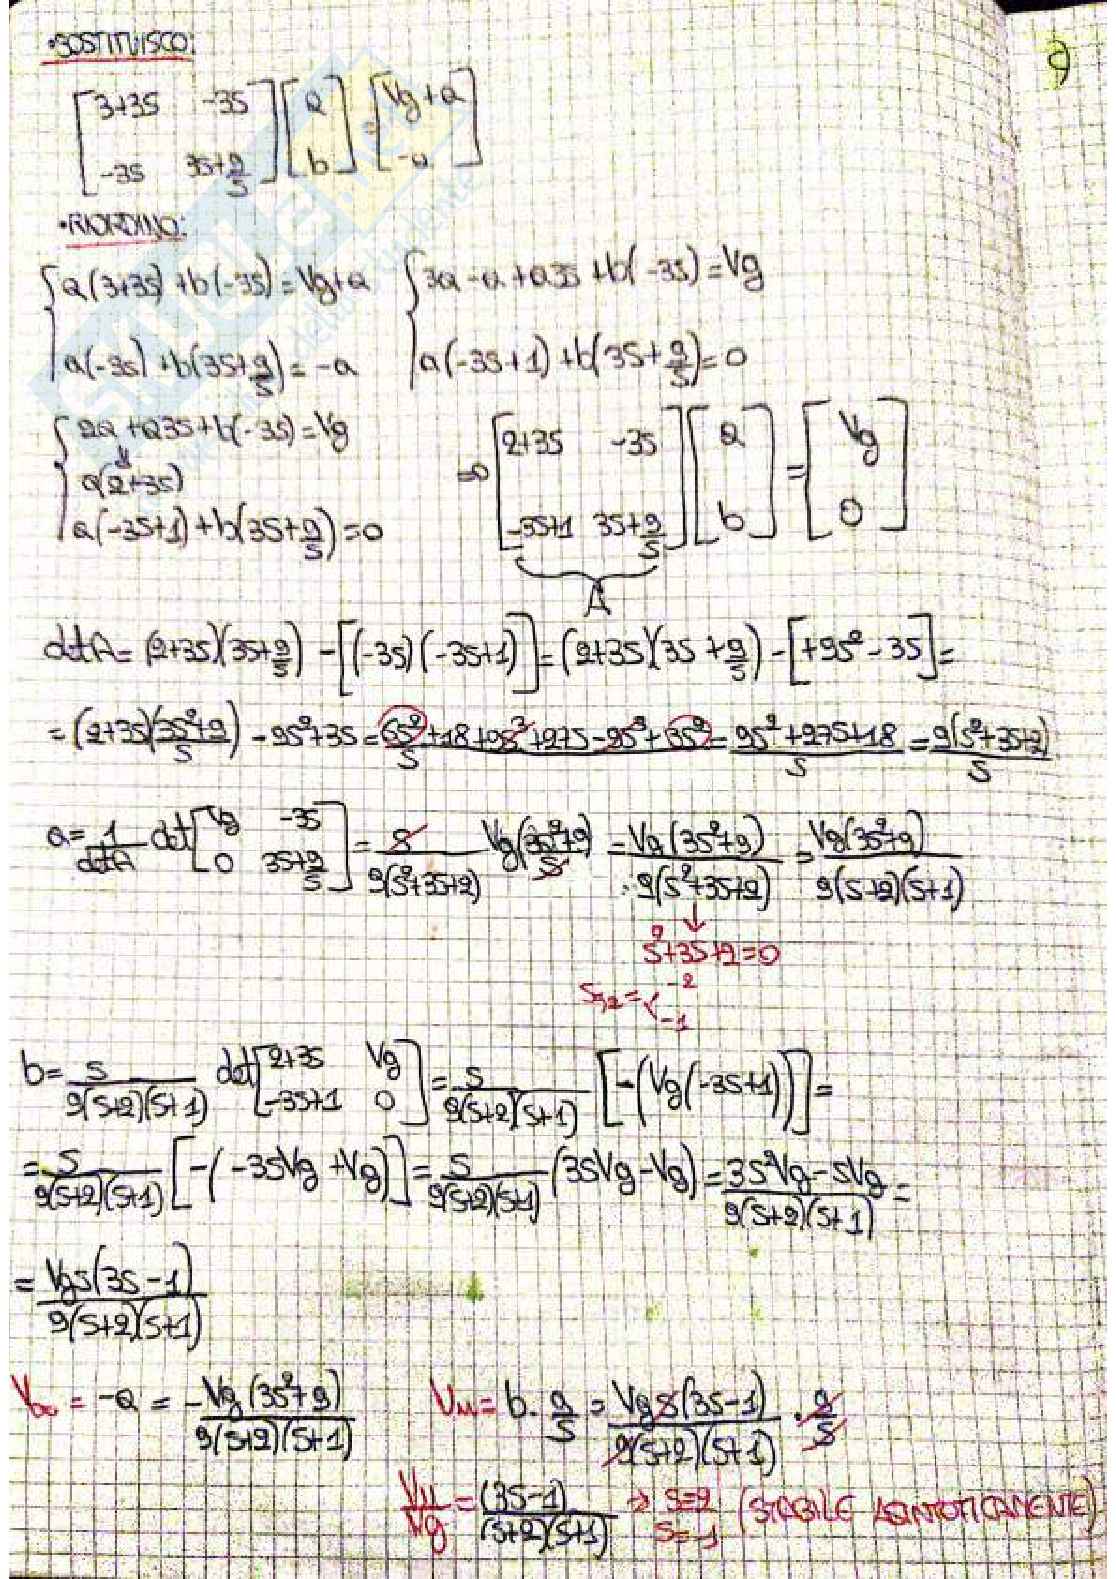 •SOSTITUISCO:
[3+3S -3S; -3S 3S+9/S] [a; b] = [Vg+a; -a]
•RIORDINO:
{a(3+3S)+b(-3S)=Vg+a {3a-a+a3S+b(-3S)=Vg
a(-3S)+b(3S+9/S)=-a a(-3S+1)+b(3S+9/S)=0
{2a+a3S+b(-3S)=Vg
a(2+3S)
a(-3S+1)+b(3S+9/S)=0
⇒ [2+3S -3S; -3S+1 3S+9/S] [a; b] = [Vg; 0]
A
detA=(2+3S)(3S+9/S)-[(-3S)(-3S+1)]=(2+3S)(3S+9/S)-[+9S²-3S]=
=(2+3S)(3S²+9)/S-9S²+3S=(6S²+18+9S³+27S-9S³+3S²)/S=(9S²+27S+18)/S=9(S²+3S+2)/S
a=1/detA det[Vg -3S; 0 3S+9/S]=S/9(S²+3S+2) Vg(3S²+9)/S=Vg(3S²+9)/9(S²+3S+2)=Vg(3S²+9)/9(S+2)(S+1)
↓
S²+3S+2=0
S1,2=< -2
-1
b=S/9(S+2)(S+1) det[2+3S Vg; -3S+1 0]=S/9(S+2)(S+1) [-(Vg(-3S+1))]=
=S/9(S+2)(S+1) [-(-3SVg+Vg)]=S/9(S+2)(S+1) (3SVg-Vg)=(3S²Vg-SVg)/9(S+2)(S+1)=
=VgS(3S-1)/9(S+2)(S+1)
=-a=-Vg(3S²+9)/9(S+2)(S+1) Vu=b·9/S=VgS(3S-1)/9(S+2)(S+1)·9/S
Vu/Vg=(3S-1)/(S+2)(S+1) → S=2 S=-1 (STABILE ASINTOTICAMENTE)